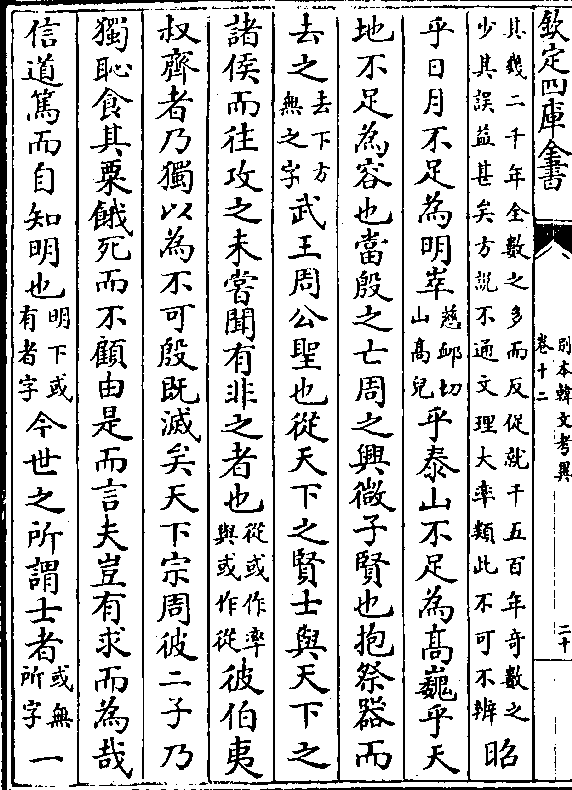 欽定四庫全書
別本韓文考異
卷十二
二十
其幾二千年全數之多而反促就千五百年奇數之
少其誤益甚矣方說不通文理大率類此不可不辨
昭
乎日月不足為明崒
慈邮切
山高皃
乎泰山不足為高巍乎天
地不足為容也當殷之亡周之興微子賢也抱祭器而
去之
去下方
無之字
武王周公聖也從天下之賢士與天下之
諸侯而往攻之未嘗聞有非之者也
從或作率
與或作從
彼伯夷
叔齊者乃獨以為不可殷既滅矣天下宗周彼二子乃
獨恥食其粟餓死而不顧由是而言夫豈有求而為哉
信道篤而自知明也
明下或
有者字
今世之所謂士者
或無
所字
一